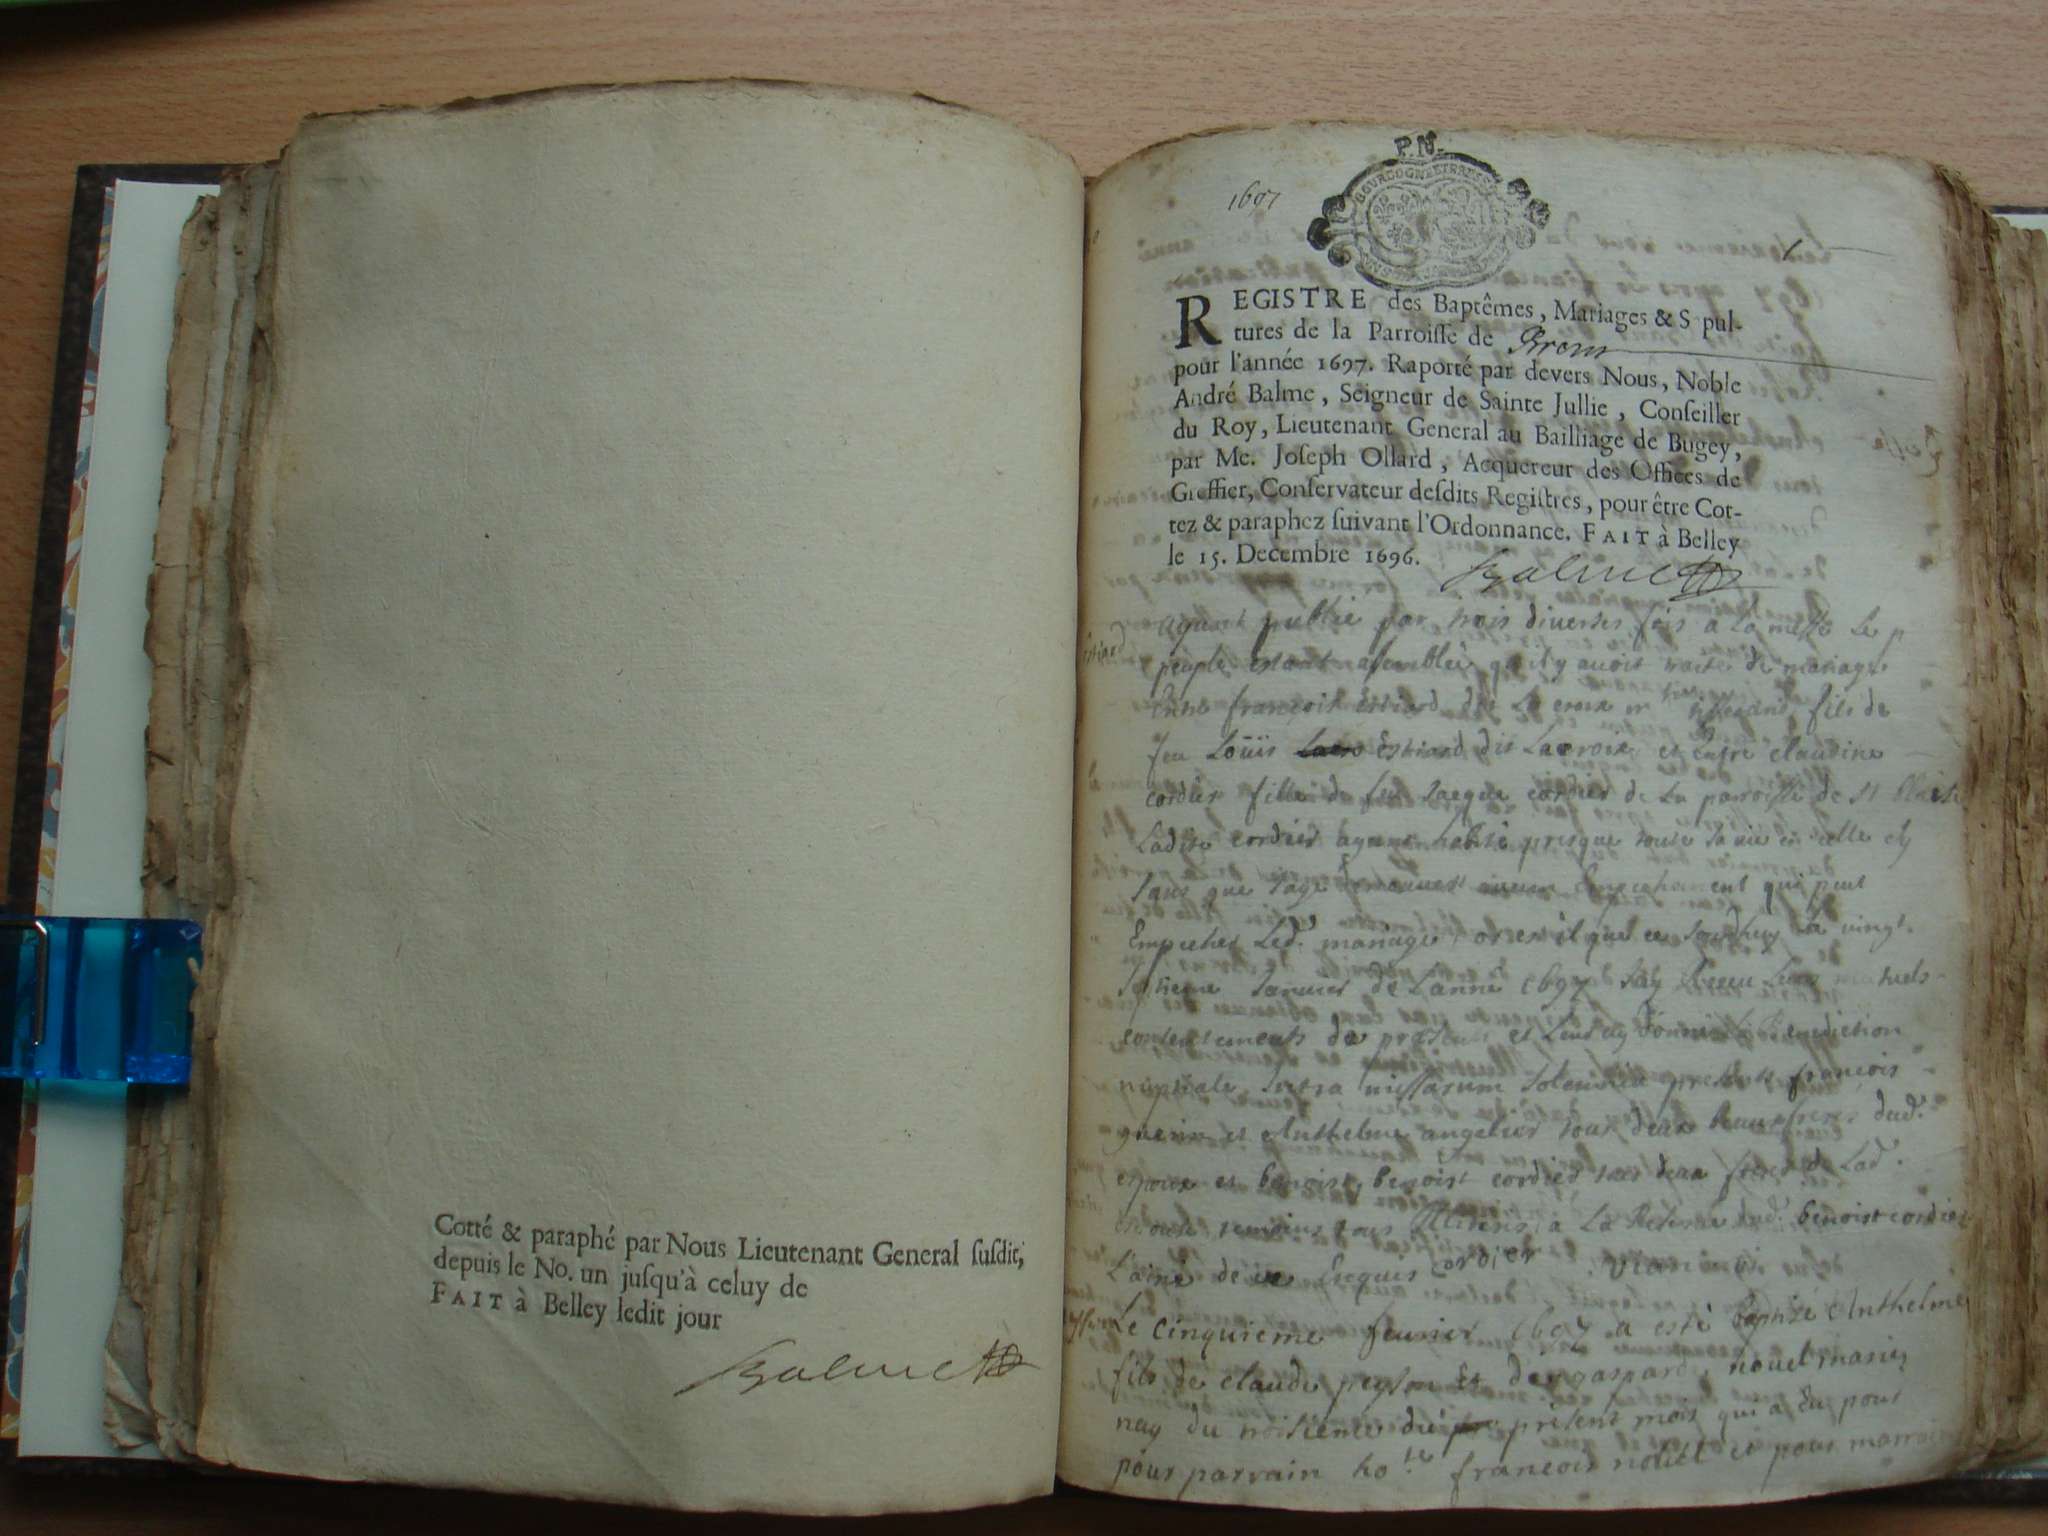 Cotté & paraphé par Nous Lieutenant General susdit,
depuis le No. un jusqu'à celuy de
FAIT à Belley ledit jour
Balme
P.N.
1697
1
REGISTRE des Baptêmes, Mariages & S pul-
tures de la Parroisse de Brens
pour l'année 1697. Raporté par devers Nous, Noble
André Balme, Seigneur de Sainte Jullie, Conseiller
du Roy, Lieutenant General au Bailliage de Bugey,
par Me. Joseph Ollard, Acquereur des Offices de
Greffier, Conservateur desdits Registres, pour être Cot-
tez & paraphez suivant l'Ordonnance. FAIT à Belley
le 15. Decembre 1696.
Balme
ayant publié par trois diverses fois a la messe le
peuple estant assemblée qu'il y avoit traité de mariage
Entre françois Estiard dit La croix fils de
feu Loüis Estiard dit Lacroix et Entre claudine
cordier fille de feu Jaeque cordier de La parroisse de st Blaise
Ladite cordier ayant habité presque toute sa vie en celle cy
sans que aucun Empechement qui peut
Empecher Led. mariage or est il que ce Jourdhuy Le vingt
Janvier de Lanné 1697 Jay Receu Leur mutuels
consentements de presents et Leur ay donné La Benediction
nuptiale Intra missarum solemnia presents françois
guerin et Anthelme angelier tous deux beaufreres dud.
espoux et benoist benoist cordier tous deux freres de Lad.
espouse temoins tous Illiteres a La Reserve dud. benoist cordier
L'ainé de ce Requis cordier
Le cinquieme fevrier 1697 a esté baptisé Anthelme
fils de claude peylon Et de gasparde nouet mariez
nay du troisieme du present mois qui a eu pour
pour parrain ho.te francois nouet et pour marraine